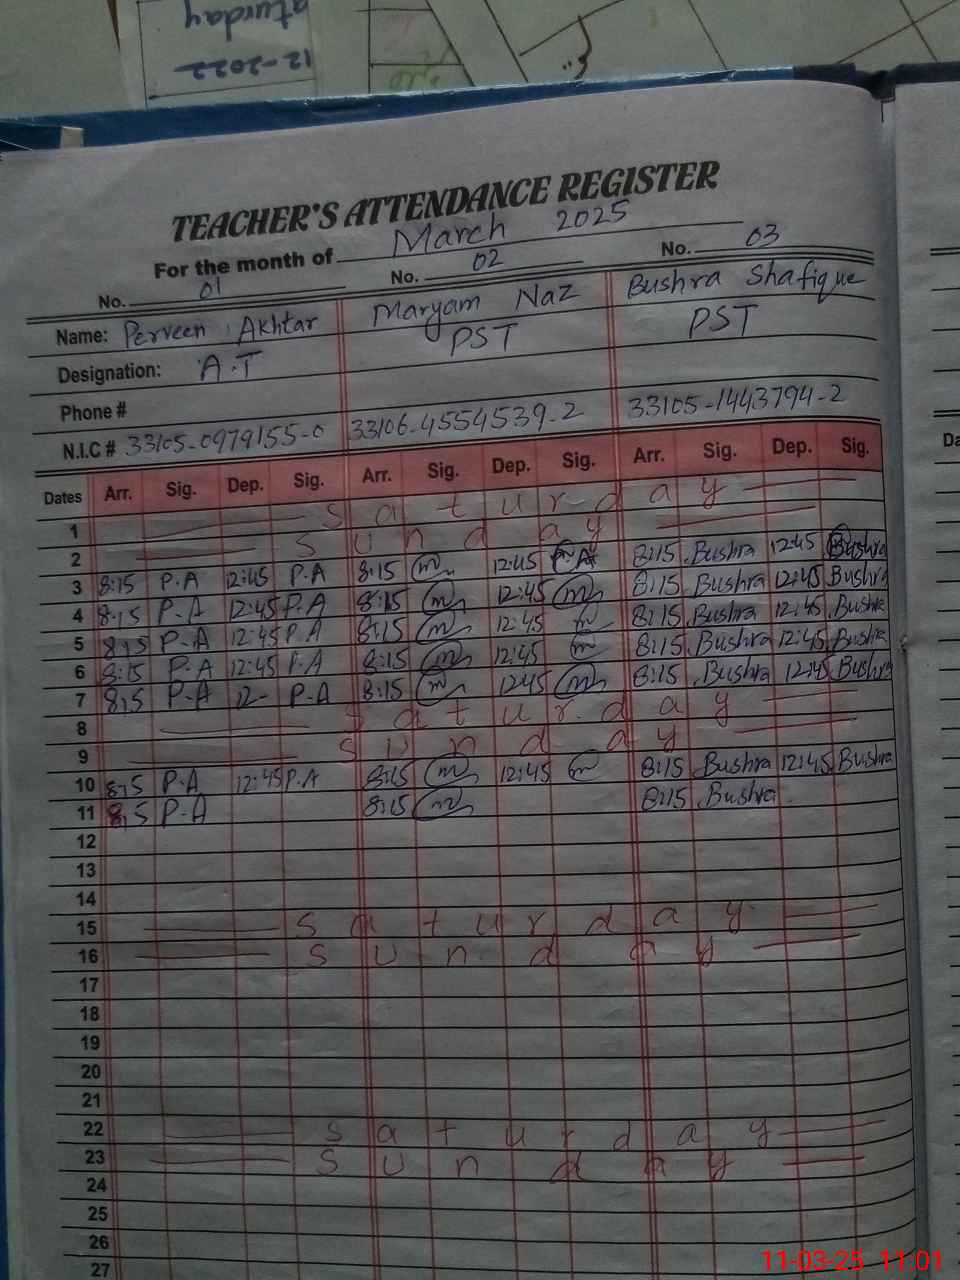 12-2022
aturday
TEACHER'S ATTENDANCE REGISTER
For the month of March 2025
No. 01 No. 02 No. 03
Name: Perveen Akhtar Maryam Naz Bushra Shafique
Designation: A.T PST PST
Phone #
N.I.C # 33105-0979155-0 33106-4554539-2 33105-1443794-2
Dates Arr. Sig. Dep. Sig. Arr. Sig. Dep. Sig. Arr. Sig. Dep. Sig.
1 Saturday
2 Sunday
3 8:15 P.A 12:45 P.A 8:15 m 12:45 8:15 Bushra 12:45 Bushra
4 8:15 P-A 12:45 P.A 8:15 m 12:45 m 8:15 Bushra 12:45 Bushra
5 8:15 P-A 12:45 P.A 8:15 m 12:45 m 8:15 Bushra 12:45 Bushra
6 8:15 P.A 12:45 P.A 8:15 m 12:45 m 8:15 Bushra 12:45 Bushra
7 8:15 P-A 12- P-A 8:15 m 12:45 m 8:15 Bushra 12:45 Bushra
8 Saturday
9 Sunday
10 8:15 P-A 12:45 P.A 8:15 m 12:45 m 8:15 Bushra 12:45 Bushra
11 8:15 P-A 8:15 m 8:15 Bushra
12
13
14
15 Saturday
16 Sunday
17
18
19
20
21
22 Saturday
23 Sunday
24
25
26
27
Da
11-03-25 11:01